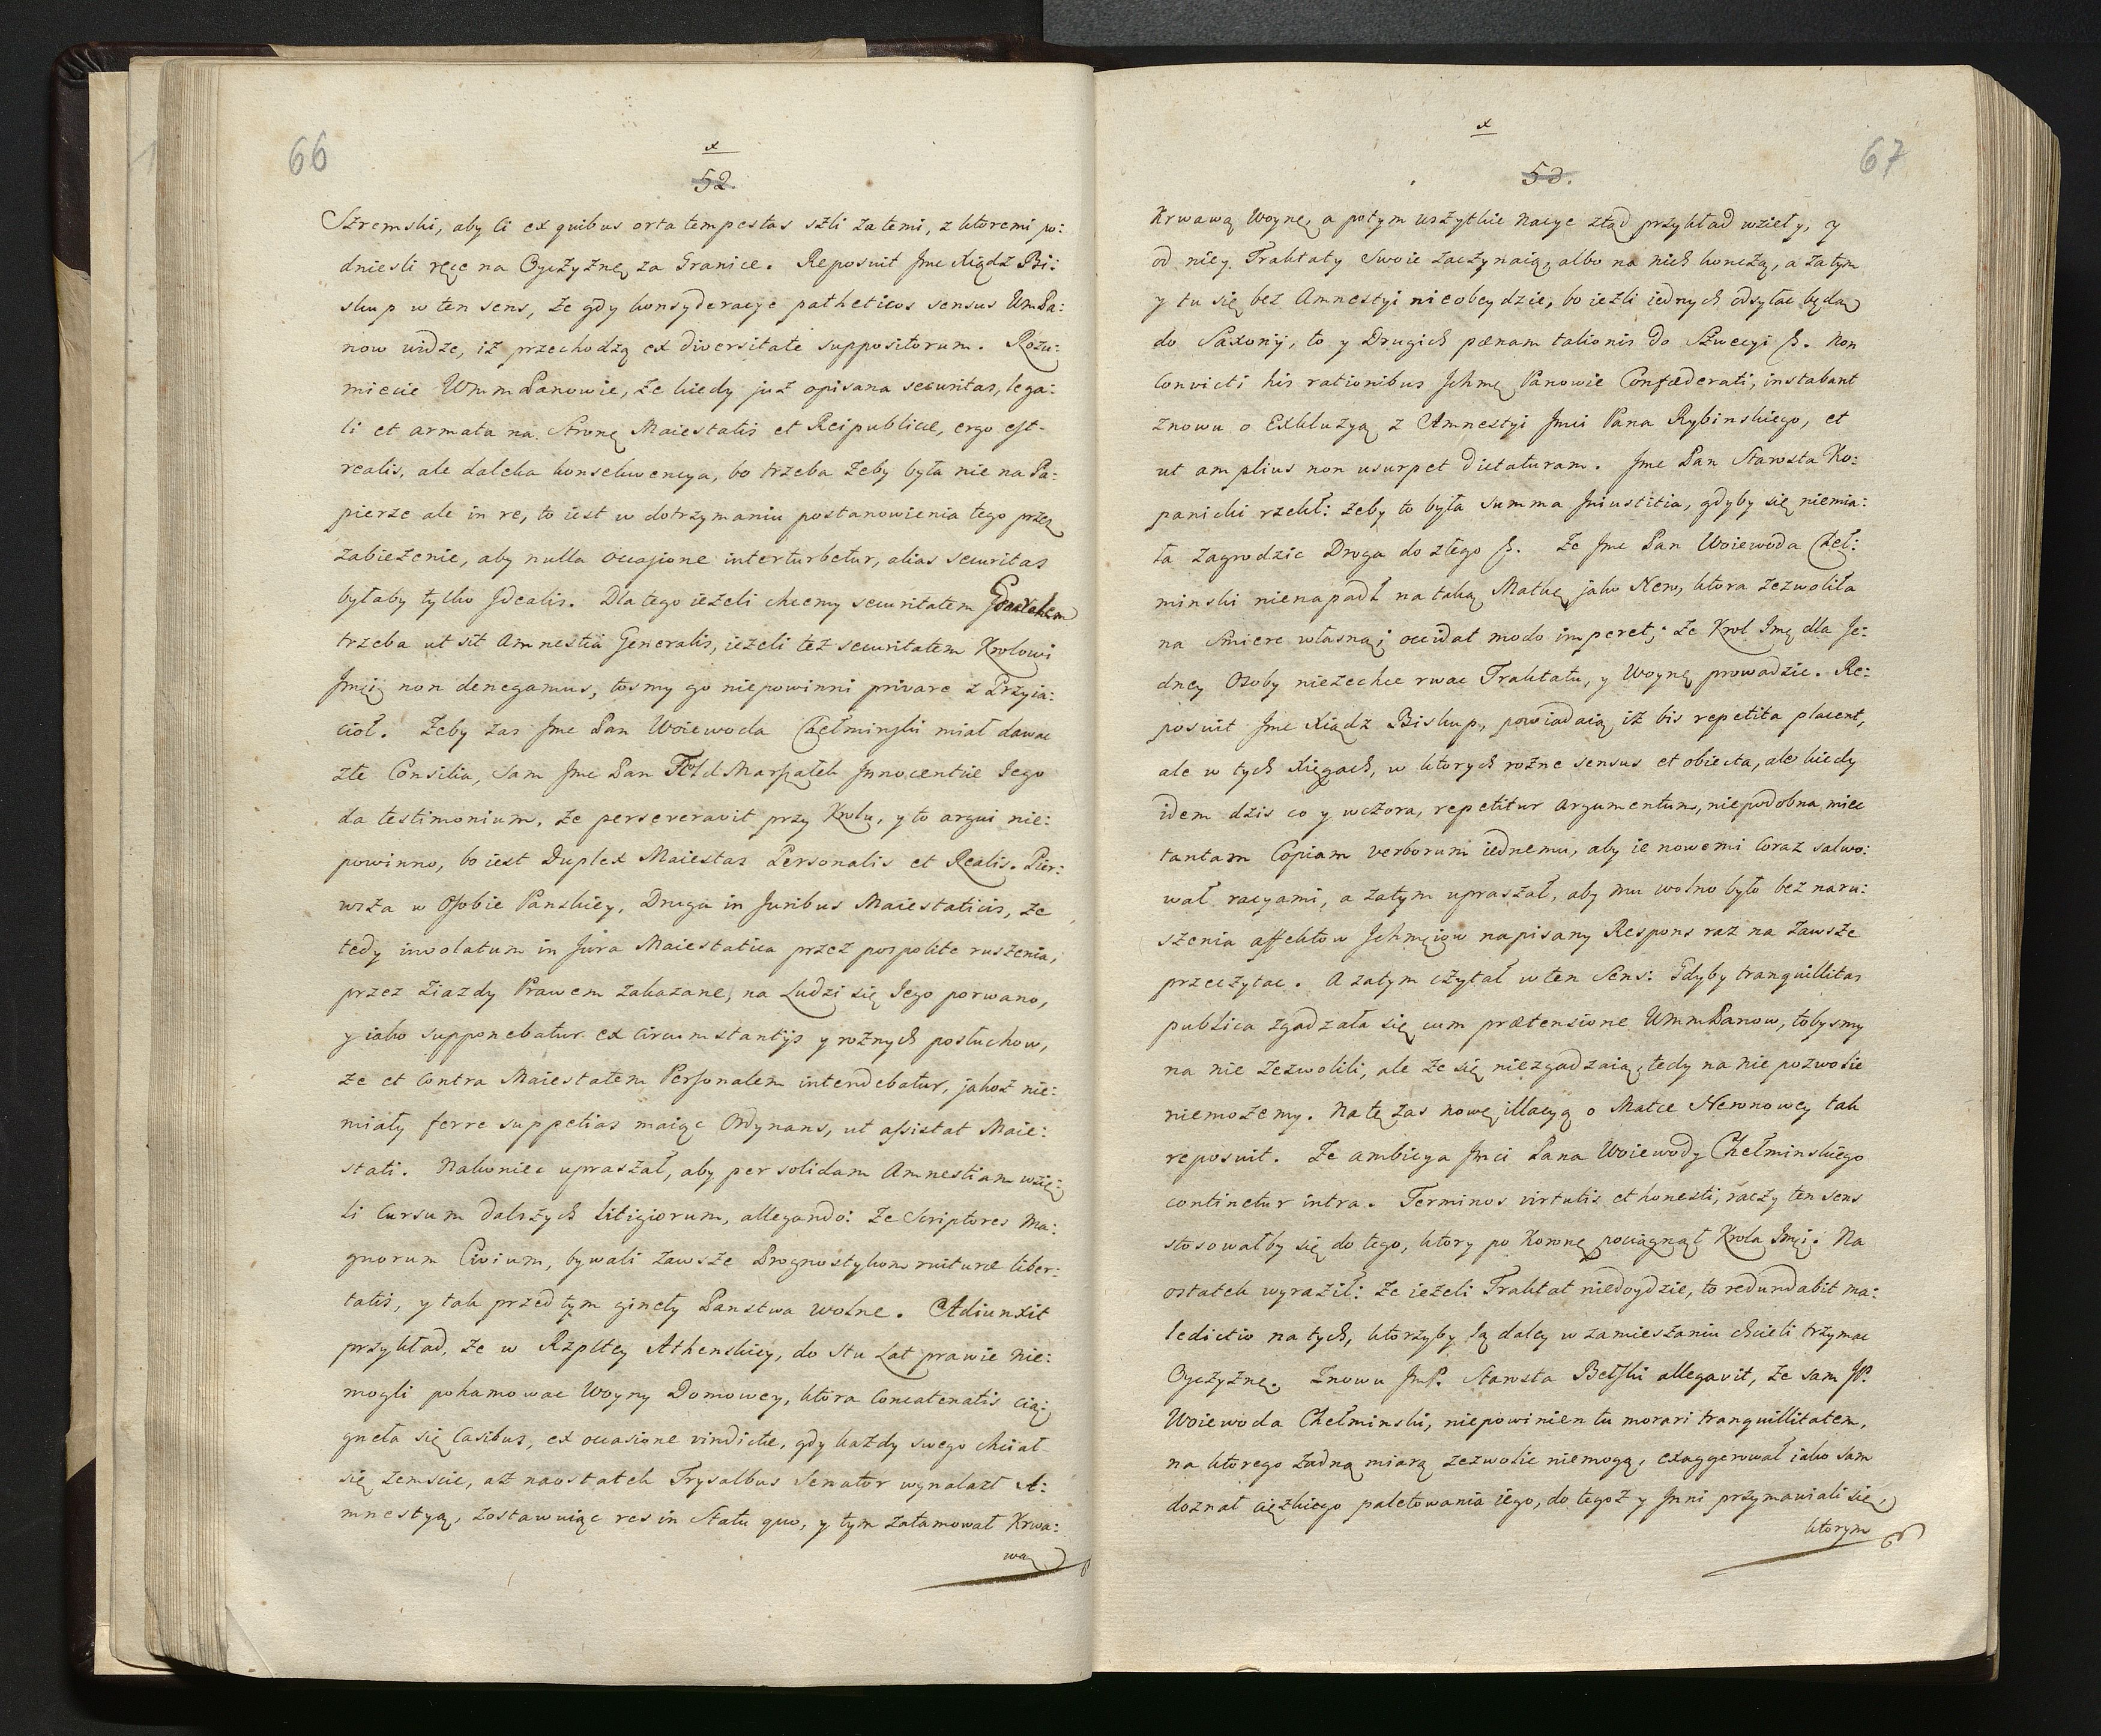 66
x
52.
Szremski, aby Ci ex quibus orta tempestas szli za temi, z ktoremi po:
dniesli ręce na Oyczyznę za Granice. Reposuit Jmc Xiądz Bi:
skup w ten sens, że gdy konsyderacye patheticos sensus WmPa:
now widzę, iż przechodzą ex diversitate suppositorum. Rozu:
miecie WmmPanowie, że kiedy już opisana securitas, lega:
li et armata na Stronę Maiestatis et Reipublicæ, ergo est
realis, ale daleka konsekwencya, bo trzeba żeby była nie na Pa:
pierze ale in re, to iest w dotrzymaniu postanowienia tego przez
zabieżenie, aby nulla occasione interturbetur, alias securitas
byłaby tylko Jdealis. Dla tego ieżeli chcemy securitatem
trzeba ut sit Amnestia Generalis, ieżeli też securitatem Krolowi
Jmći non denegamus, tosmy go niepowinni privare z Przyia:
cioł. Żeby zas Jmc Pan Woiewoda Chełminski miał dawac
złe Consilia, sam Jmc Pan Marszałek Jnnocentiæ Jego
da testimonium, że perseveravit przy Krolu, y to argui nie:
powinno, bo iest Duplex Maiestas Personalis et Realis. Pier:
wsza w Osobie Panskiey, Druga in Juribus Maiestaticis, że
tedy involatum in Jura Maiestatica przez pospolite ruszenia,
przez Ziazdy Prawem zakazane, na Ludzi się Jego porwano,
y iako supponebatur ex circumstantijs y rożnych posłuchow,
że et contra Maiestatem Personalem intendebatur, jakoż nie:
miały ferre suppetias maiąc Ordynans, ut assistat Maie:
stati. Nakoniec upraszał, aby per solidam Amnestiam wzię:
li Cursum dalszych litigiorum, allegando: że Scriptores Ma:
gnorum Civium, bywali zawsze Prognostykom ruituræ liber:
tatis, y tak przed tym gineły Panstwa wolne. Adiunxit
przykład, że w Rzpltey Athenskiey, do Stu Lat prawie nie:
mogli pohamowac Woyny Domowey, ktora Concatenatis cią:
gneła się Casibus, ex occasione vindictæ, gdy każdy swego chciał
się zemscic, aż naostatek Trysalbus Senator wynalazł A:
mnestyą, zostawuiąc res in Statu quo, y tym zatamował Krwa:
wą
67
x
53.
Krwawą Woynę, a potym wszytkie Nacye ztąd przykład wzieły, y
od niey Traktaty Swoie zaczynaią, albo na nich konczą, a zatym
y tu się bez Amnestyi nieobeydzie, bo ieżli iednych odsyłac będą
do Saxonij, to y Drugich pænam talionis do Szwecyi &. Non
Convicti his rationibus Jchmc Panowie Confæderati, instabant
znowu o Exkluzyą z Amnestyi Jmci Pana Rybinskiego, et
ut amplius non usurpet dictaturam. Jmc Pan Starosta Ko:
panicki rzekł: żeby to była Summa Jniustitia, gdyby się niemia:
ła zagrodzic Droga do złego &. Że Jmc Pan Woiewoda Cheł:
minski nienapadł na taką Matkę jako Nero, ktora zezwoliła
na Smierc własną; occidat modo imperet; że Krol Jmć dla Je:
dney Osoby niezechce rwac Traktatu, y Woynę prowadzic. Re:
posuit Jmc Xiądz Biskup, powiadaią iż bis repetita placent,
ale w tych Xięgach, w ktorych rożne sensus et obiecta, ale kiedy
idem dzis co y wczora, repetitur argumentum, niepodobna miec
tantam Copiam verborum iednemu, aby ie nowemi coraz salwo:
wał racyami, a zatym upraszał, aby mu wolno było bez naru:
szenia affektow Jchmciow napisany Respons raz na zawsze
przeczytac. A zatym czytał w ten Sens: Gdyby tranquillitas
publica zgadzała się cum prætensione WmmPanow, tobysmy
na nie zezwolili, ale że się niezgadzaią, tedy na nie pozwolic
niemożemy. Na tę zas nowę illacyą o Matce Neronowey tak
reposuit. Że ambicya Jmci Pana Woiewody Chełminskiego
continetur intra. Terminos virtutis et honesti, raczy ten sens
stosowałby się do tego, ktory po Koronę pociągnął Krola Jmći. Na
ostatek wyraził: że ieżeli Traktat niedoydzie, to redundabit ma:
ledictio na tych, ktorzyby ią daley w zamieszaniu chcieli trzymac
Oyczyznę. Znowu JmP. Starosta Bełski allegavit, że sam JP.
Woiewoda Chełminski, niepowinien tu morari tranquillitatem,
na ktorego żadną miarą zezwolic niemogą, exaggerował iako sam
doznał cięzkiego paletowania iego, do tegoż y Jnni przymawiali się,
ktorym